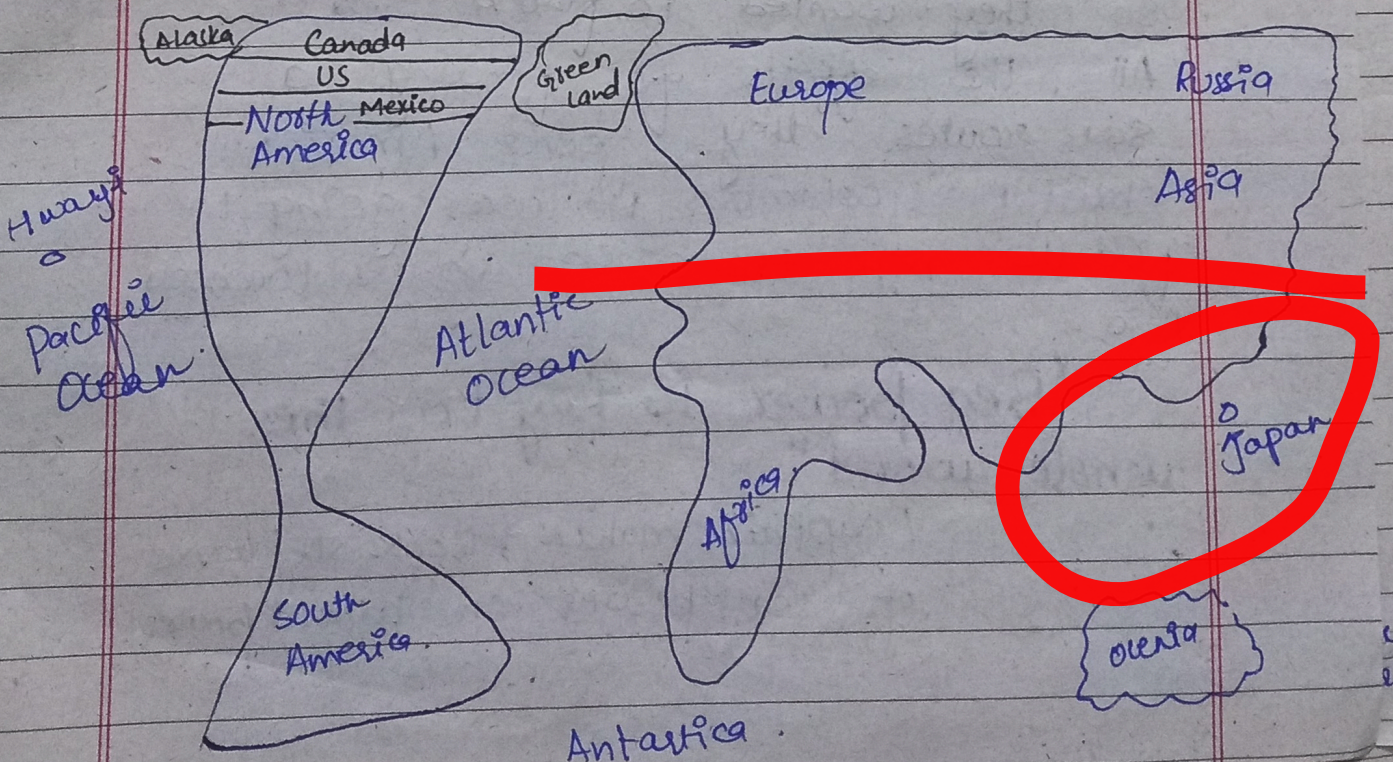 Alaska
Canada
US
Mexico
North
America
Green
Land
Europe
Russia
Asia
Hwayi
Pacific
Ocean
Atlantic
Ocean
Africa
Japan
South
America
Ocenia
Antartica